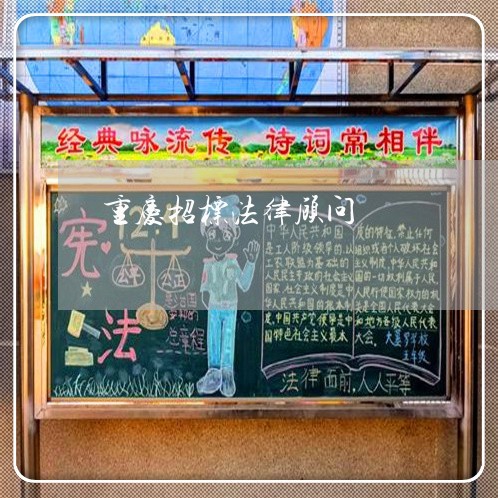 经典咏流传 诗词常相伴
重庆招标法律顾问
宪
法
12.4
公平
公正
爱我国的
总章程
中华人民共和国
是工人阶级领导的,以
工农联盟为基础的
人民民主专政的社会主义
国家,社会主义制度是中
华人民共和国的根本制
度,中国共产党领导是中
国特色社会主义最本
质的特征,禁止任何
组织或者个人破坏社会
主义制度,中华人民共和
国的一切权利属于人民,
人民行使国家权力的机
关是全国人民代表大会
和地方各级人民代表
大会。
五年级
法律面前,人人平等